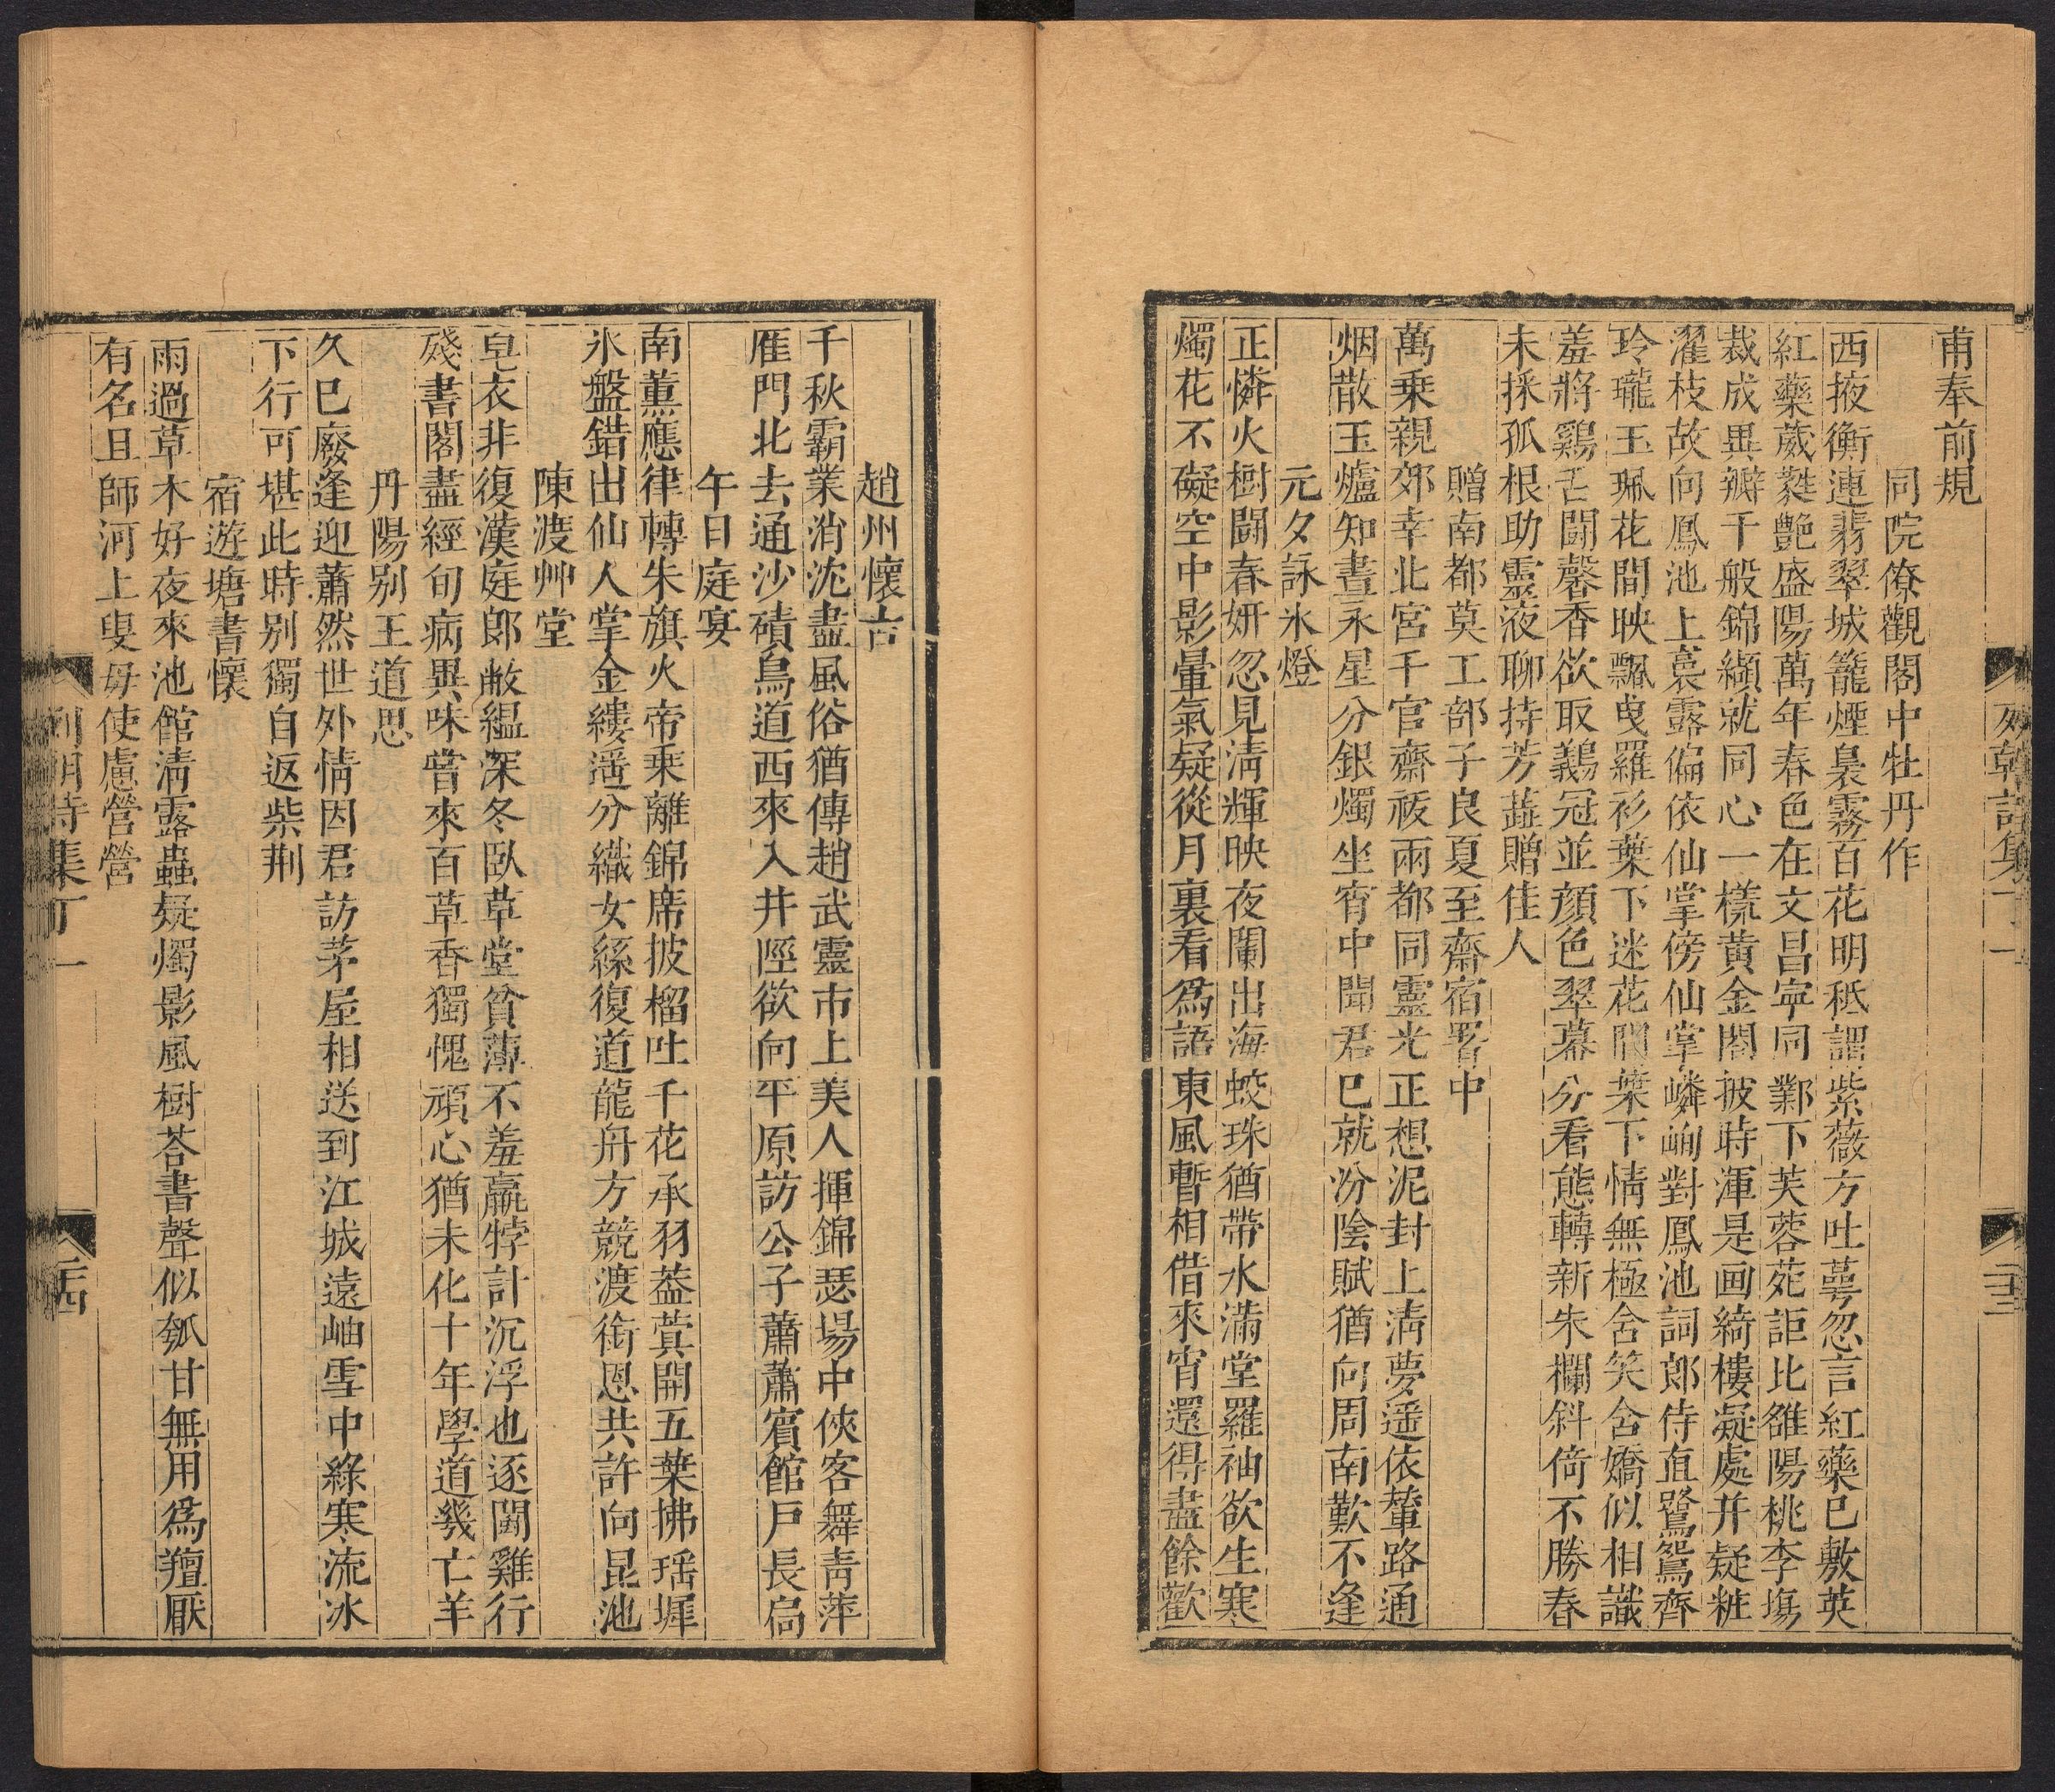 甫奉前規
同院僚觀閣中牡丹作
西掖衡連翡翠城籠煙裊霧百花明秪謂紫薇方吐萼忽言紅藥已敷英
紅藥葳蕤艶盛陽萬年春色在文昌寕同鄴下芙蓉苑詎比雒陽桃李塲
裁成異瓣千般錦纈就同心一㨾黄金閣披時渾是画綺樓凝處并疑粧
濯枝故向鳳池上裛露偏依仙掌傍仙掌嶙峋對鳳池詞郎侍直鷺鴛齊
玲瓏玉珮花間映飄曳羅衫葉下迷花間葉下情無極含笑含嬌似相識
羞將鷄舌鬪馨香欲取鷄冠並顔色翠幕分看態轉新朱欄斜倚不勝春
未採孤根助靈液聊持芳蕋贈佳人
贈南都莫工部子良夏至齋宿署中
萬乗親郊幸北宮千官齋祓兩都同靈光正想泥封上淸夢遥依輦路通
烟散玉爐知晝永星分銀燭坐宵中聞君已就汾陰賦猶向周南歎不逢
元夕詠氷燈
正憐火樹鬪春妍忽見淸輝映夜闌出海蛟珠猶帶水滿堂羅袖欲生寒
燭花不礙空中影暈氣疑從月裏看爲語東風暫相借來宵還得盡餘歡
列朝詩集丁一
二十三
趙州懷古
千秋霸業消沈盡風俗猶傳趙武靈市上美人揮錦瑟場中俠客舞靑萍
雁門北去通沙磧鳥道西來入井陘欲向平原訪公子蕭蕭賓館戸長扃
午日庭宴
南薫應律轉朱旗火帝乗離錦席披榴吐千花承羽葢蓂開五葉拂瑶墀
氷盤錯出仙人掌金縷遥分織女絲復道龍舟方競渡銜恩共許向昆池
陳渡艸堂
皁衣非復漢庭郎敝緼深冬臥草堂貧薄不羞羸牸計沉浮也逐鬪雞行
殘書閣盡經旬病異味嘗來百草香獨愧頑心猶未化十年學道幾亡羊
丹陽别王道思
久已廢逢迎蕭然世外情因君訪茅屋相送到江城遠岫雪中綠寒流冰
下行可堪此時别獨自返柴荆
宿遊塘書懷
雨過草木好夜來池館淸露蟲疑燭影風樹荅書聲似瓠甘無用爲羶厭
有名且師河上叟毋使慮營營
列朝詩集丁一
二十四